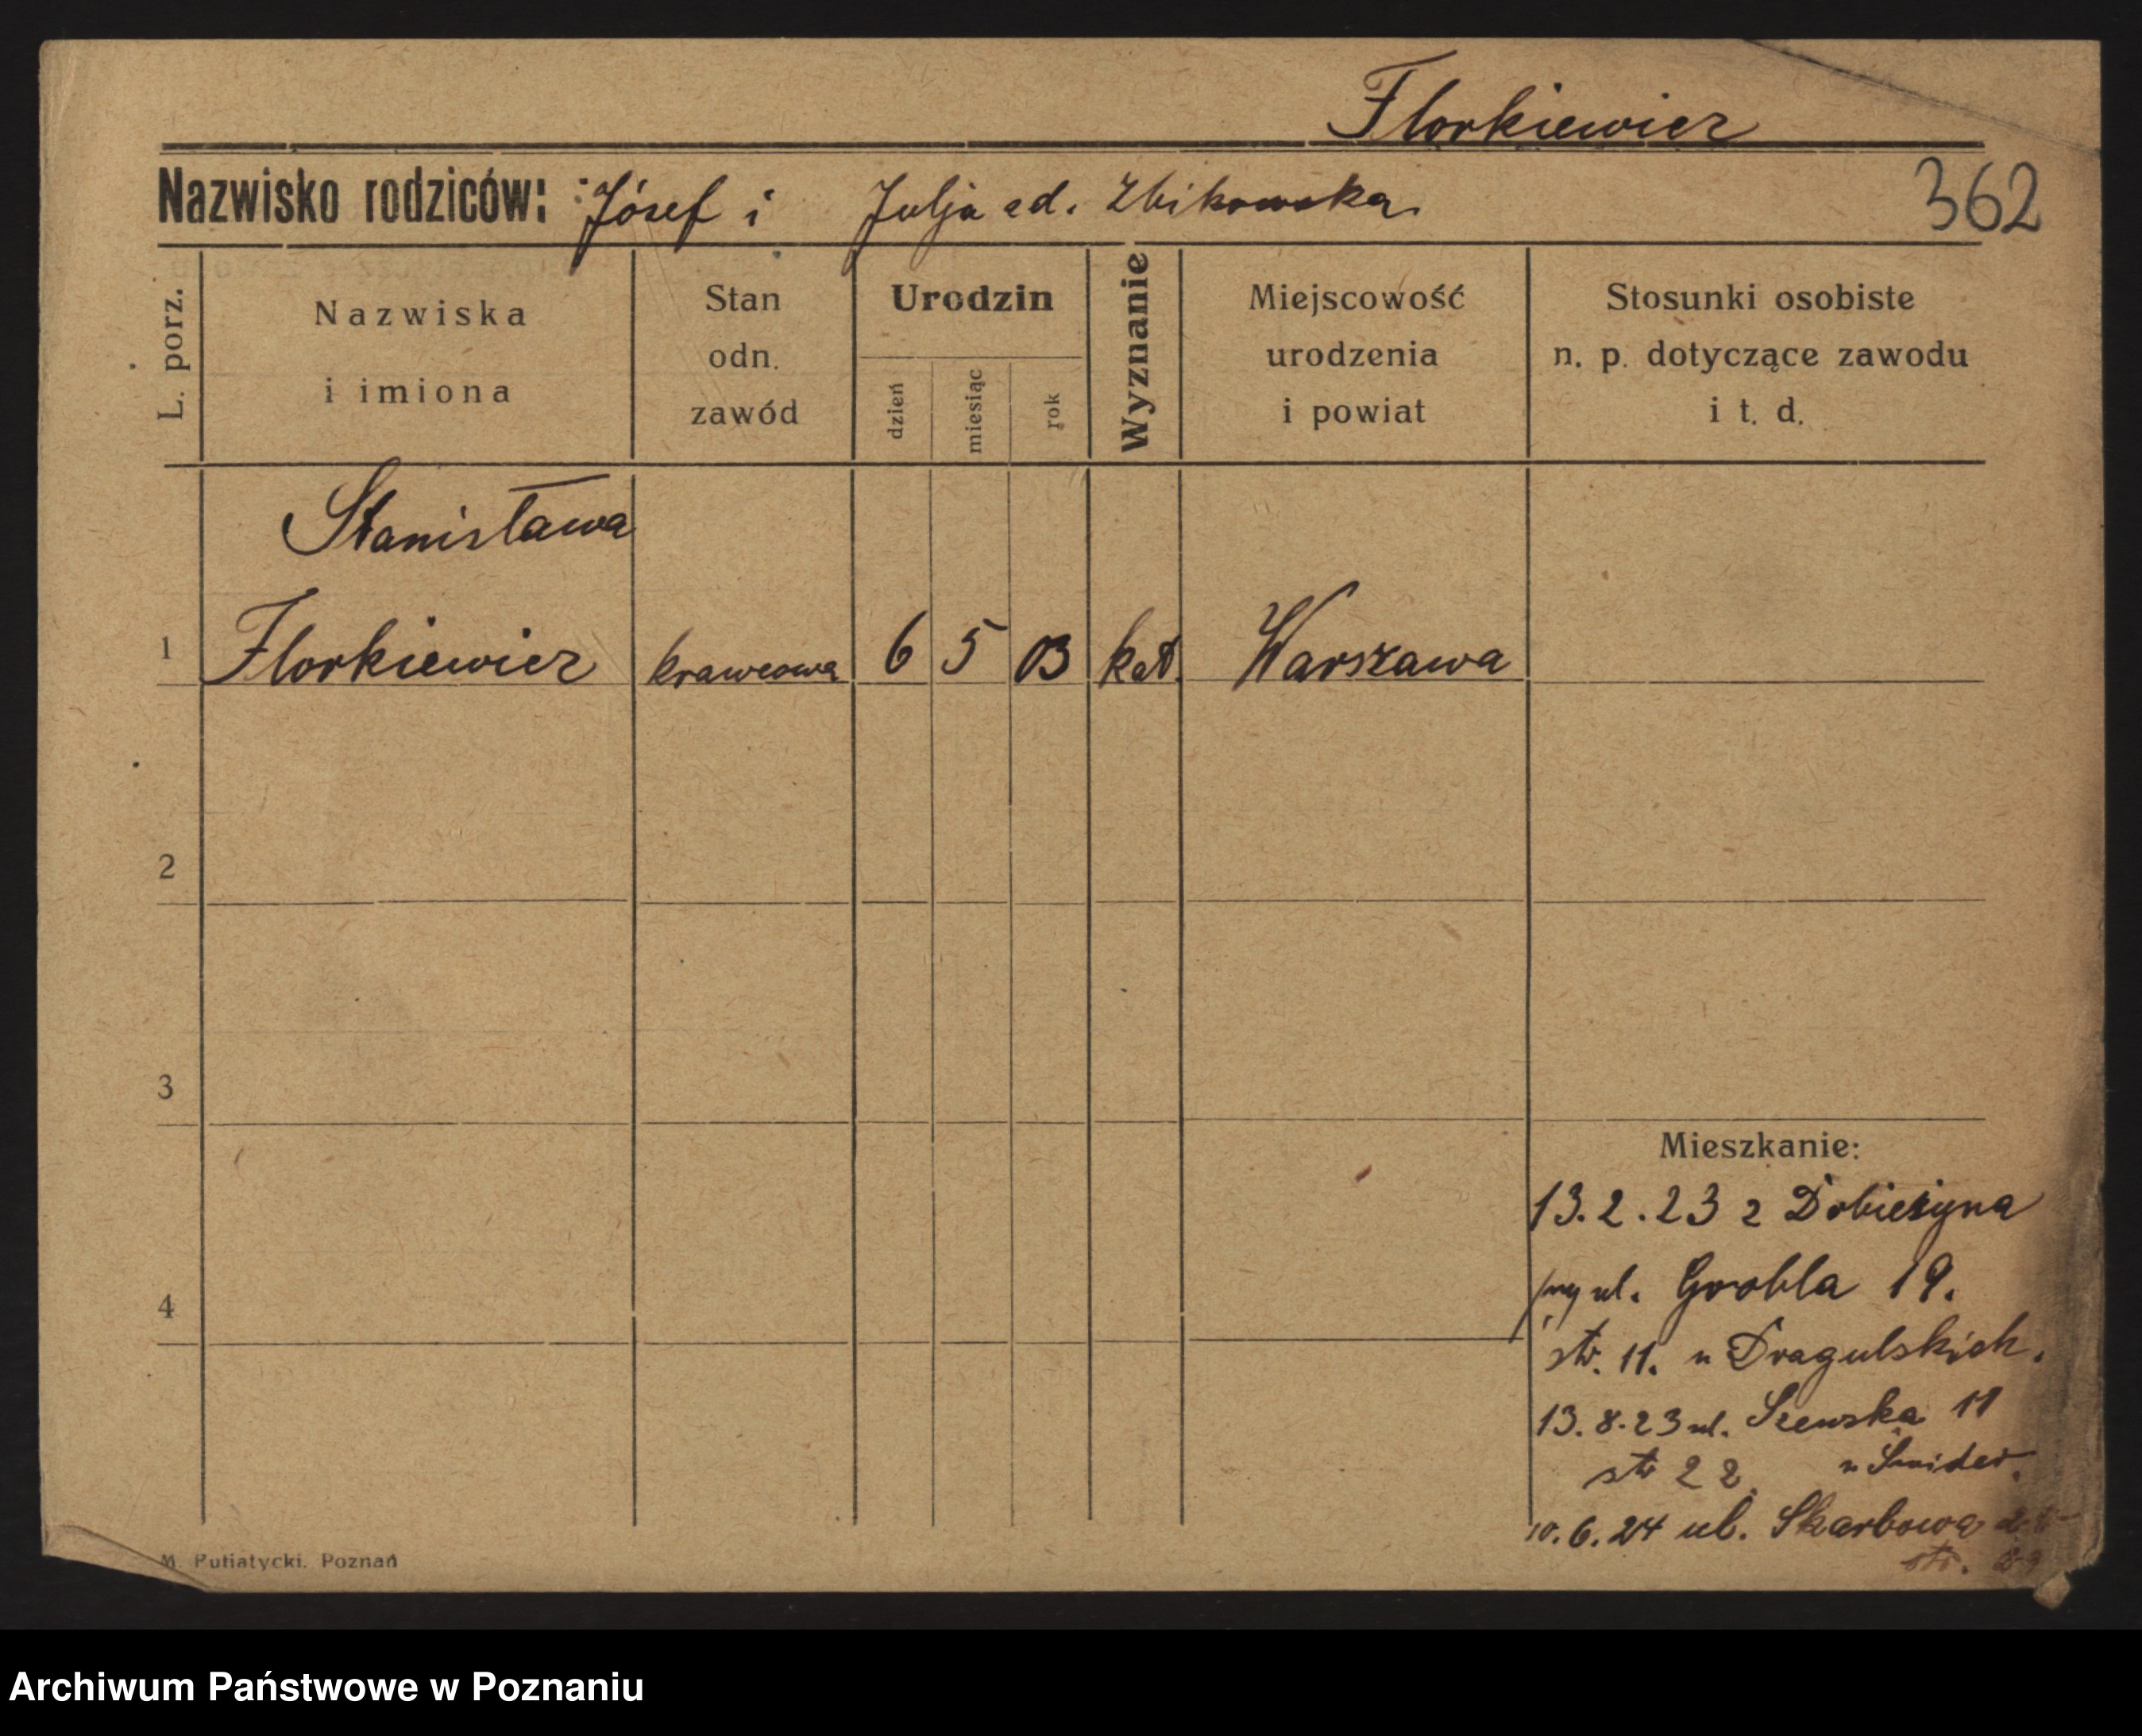 Florkiewicz
Nazwisko rodziców: Józef i Julja zd. Zbikowska
362
L. porz.
Nazwiska
i imiona
Stan
odn.
zawód
Urodzin
dzień
miesiąc
rok
Wyznanie
Miejscowość
urodzenia
i powiat
Stosunki osobiste
n. p. dotyczące zawodu
i t. d.
Stanisława
1 Florkiewicz krawcowa 6 5 03 kat. Warszawa
2
3
4
Mieszkanie:
13.2.23 z Dobieżyna
ul. Grobla 19.
str. 11. u Dragulskich.
13.8.23 ul. Szewska 11
str 22 u
10.6.24 ul. Skarbowa
str.
M. Putiatycki. Poznań
Archiwum Państwowe w Poznaniu